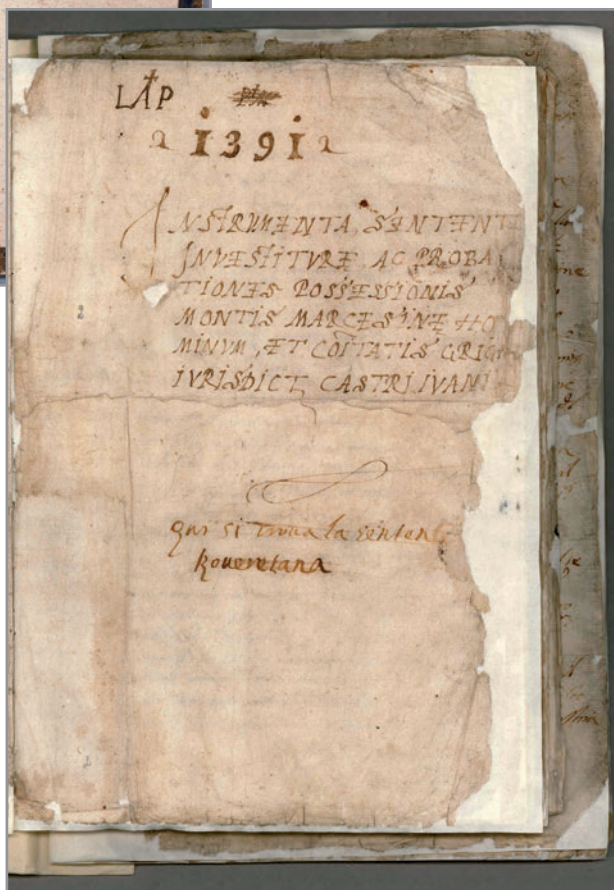 LAP
1391
INSTRUMENTA, SENTENT
INVESTITVRE, AC PROBA
TIONES POSSESSIONIS
MONTIS MARCESINE HO
MINVM, ET COITATIS GRIG
IVRISDICT, CASTRI IVANI
qui si troua la sentent
Roueretana